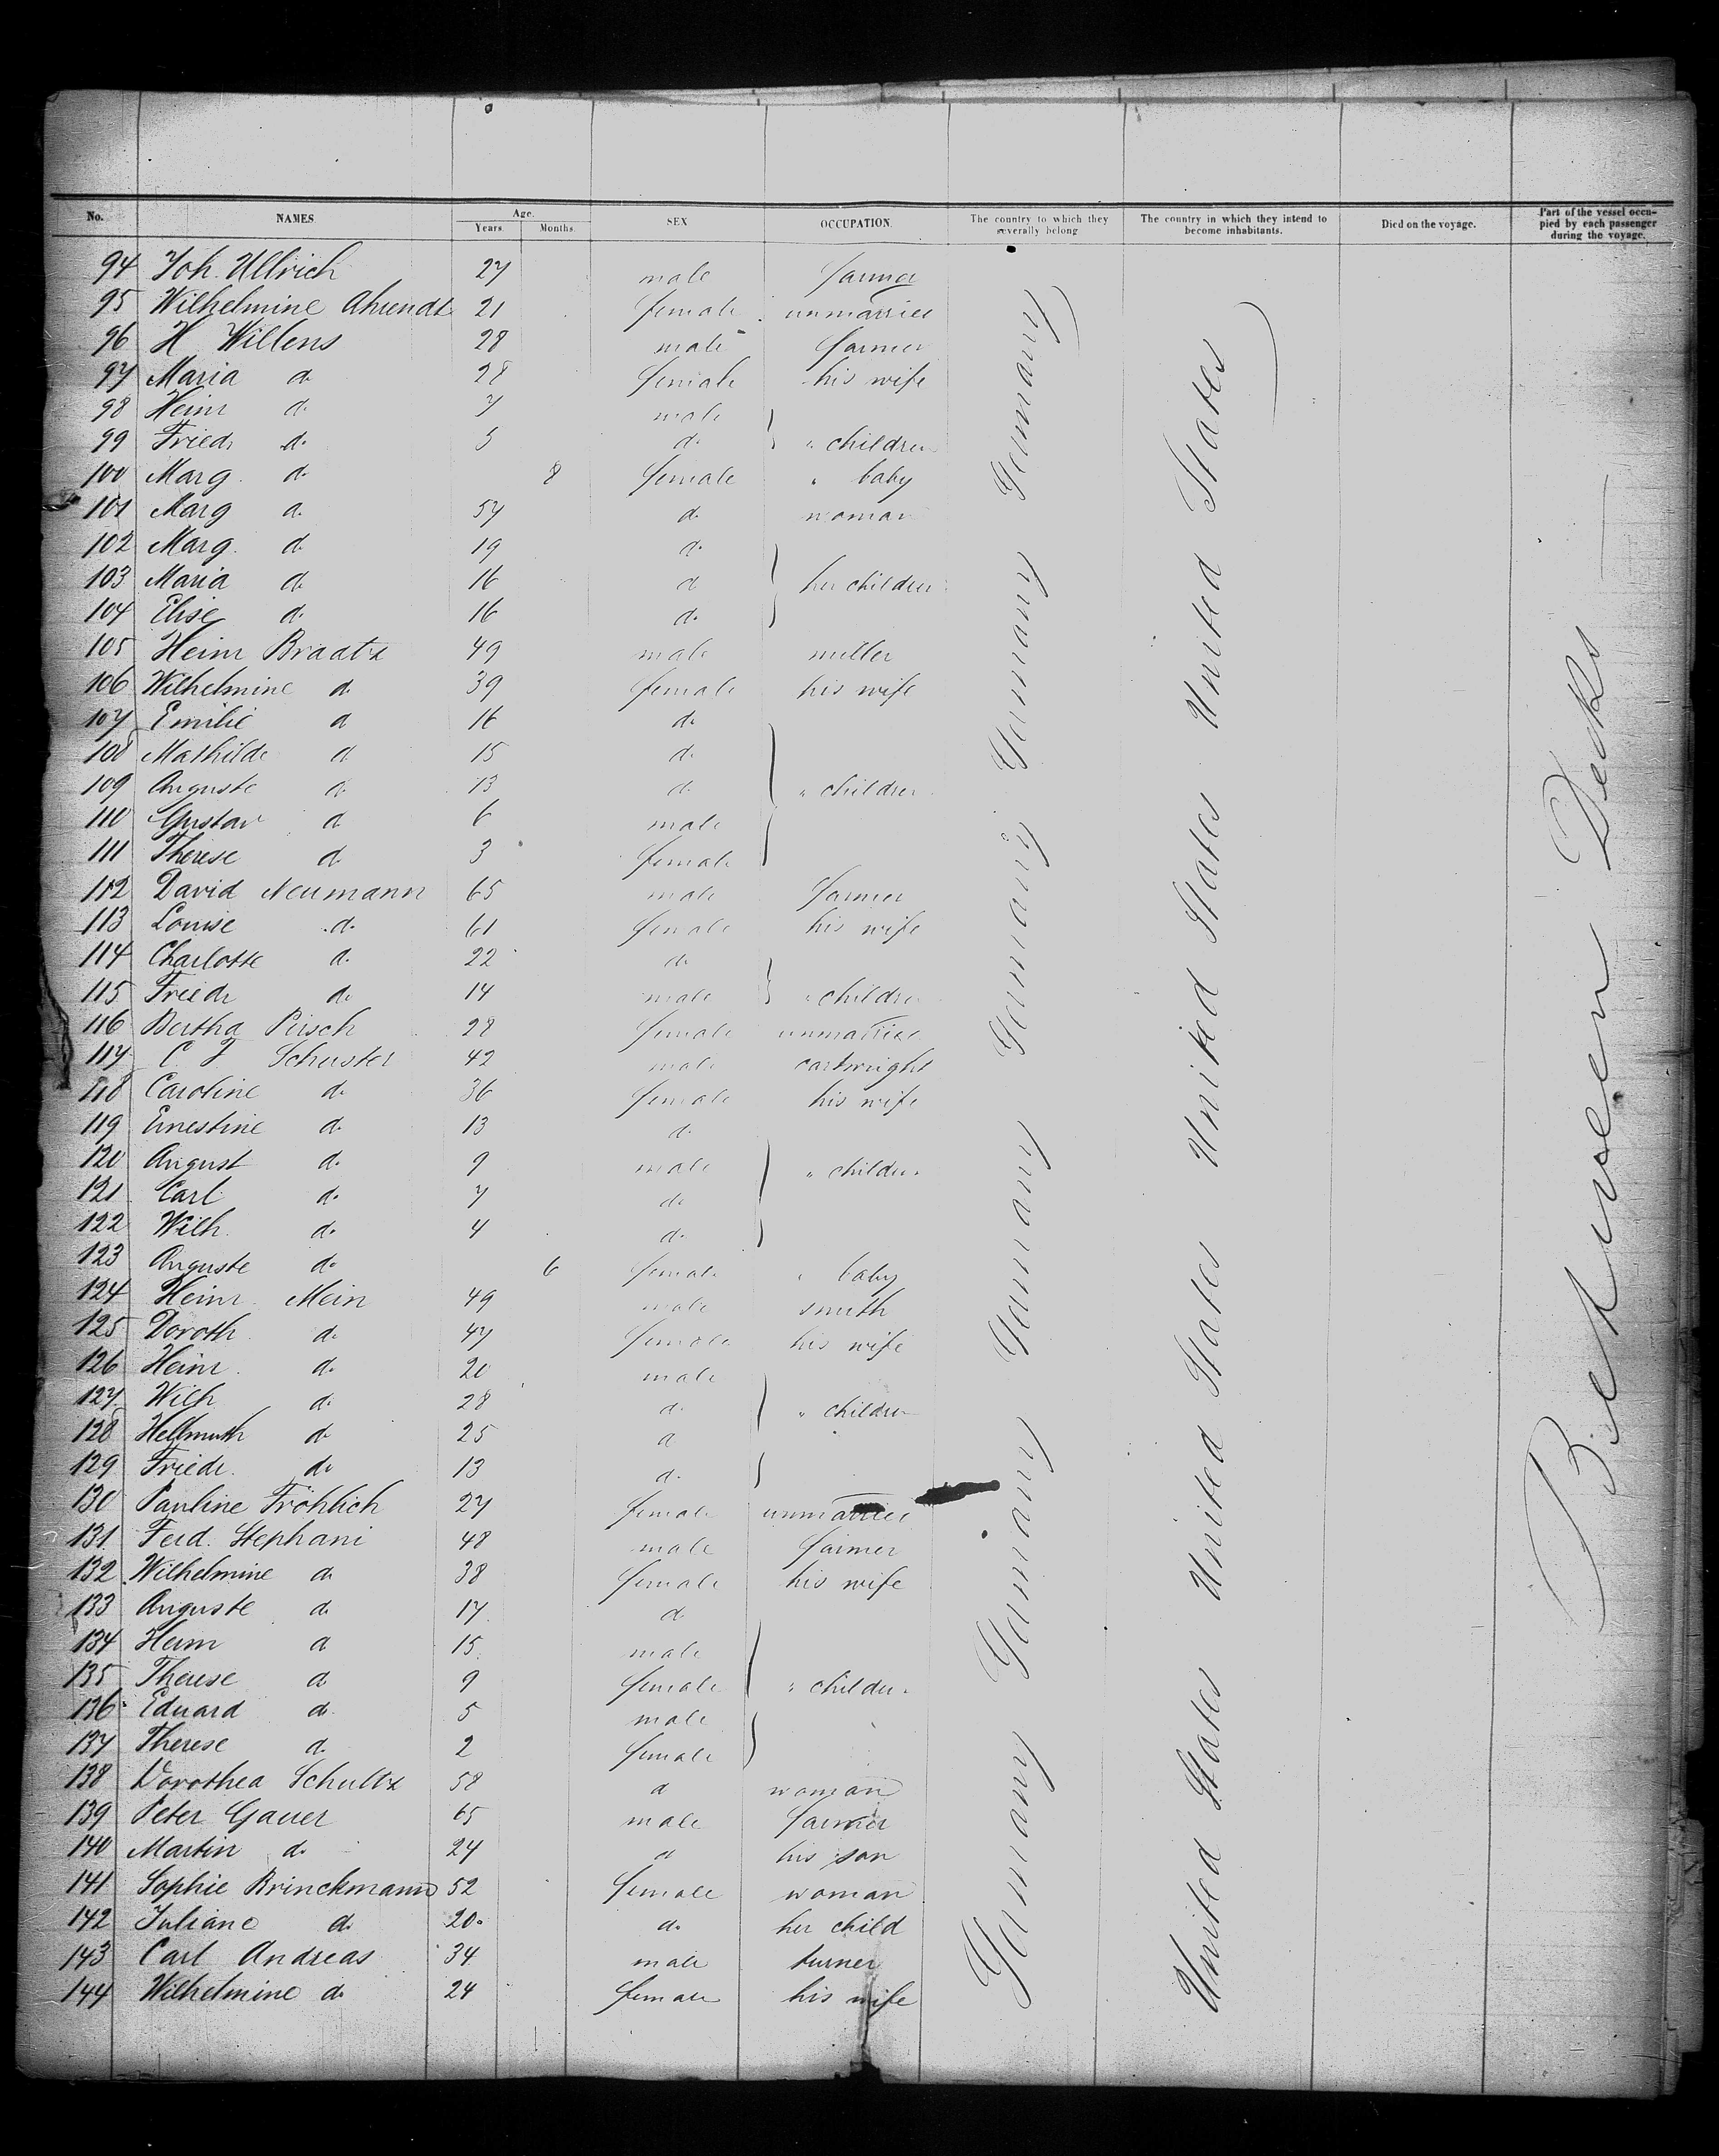 No. NAMES. Age. Years. Months. SEX OCCUPATION. The country to which they severally belong The country in which they intend to become inhabitants. Died on the voyage. Part of the vessel occupied by each passenger during the voyage.
94 Joh. Ullrich 27 male farmer
95 Wilhelmine Ahrendt 21 female unmarried
96 H Willens 28 male farmer
97 Maria do 28 female his wife
98 Heinr do. 7 male
99 Friedr do. 5 do. " children
100 Marg. do. 8 female " baby
101 Marg do. 57 do. woman
102 Marg. do 19 do.
103 Maria do 16 do her children
104 Elise do. 16 do.
105 Heinr Braatz 49 male miller
106 Wilhelmine do. 39 female his wife
107 Emilie do 16 do.
108 Mathilde do 15 do.
109 Auguste do. 13 do. " children
110 Gustav do. 6 male
111 Therese do. 3 female
112 David Neumann 65 male farmer
113 Louise do. 61 female his wife
114 Charlotte do. 22 do.
115 Friedr do 14 male " children
116 Bertha Pirsch 28 female unmarried
117 C. F. Schuster 42 male cartwright
118 Caroline do. 36 female his wife
119 Ernestine do. 13 do.
120 August do. 9 male " children
121 Carl do. 7 do.
122 Wilh. do. 4 do.
123 Auguste do. 6 female " baby
124 Heinr. Mein 49 male smith
125 Doroth. do. 47 female his wife
126 Heinr. do. 20 male
127 Wilh do. 28 do. " children
128 Hellmuth do 25 do
129 Friedr. do 13 do.
130 Pauline Fröhlich 27 female unmarried
131 Ferd. Stephani 48 male farmer
132 Wilhelmine do 38 female his wife
133 Auguste do. 17 do.
134 Heinr do 15 male
135 Therese do 9 female " children
136 Eduard do. 5 male
137 Therese do. 2 female
138 Dorothea Schultz 58 do woman
139 Peter Gauer 65 male farmer
140 Martin do. 24 do his son
141 Sophie Brinckmann 52 female woman
142 Juliane do. 20. do. her child
143 Carl Andreas 34 male turner
144 Wilhelmine do. 24 female his wife
Germany Germany Germany Germany Germany Germany
United States United States United States United States
Between Decks